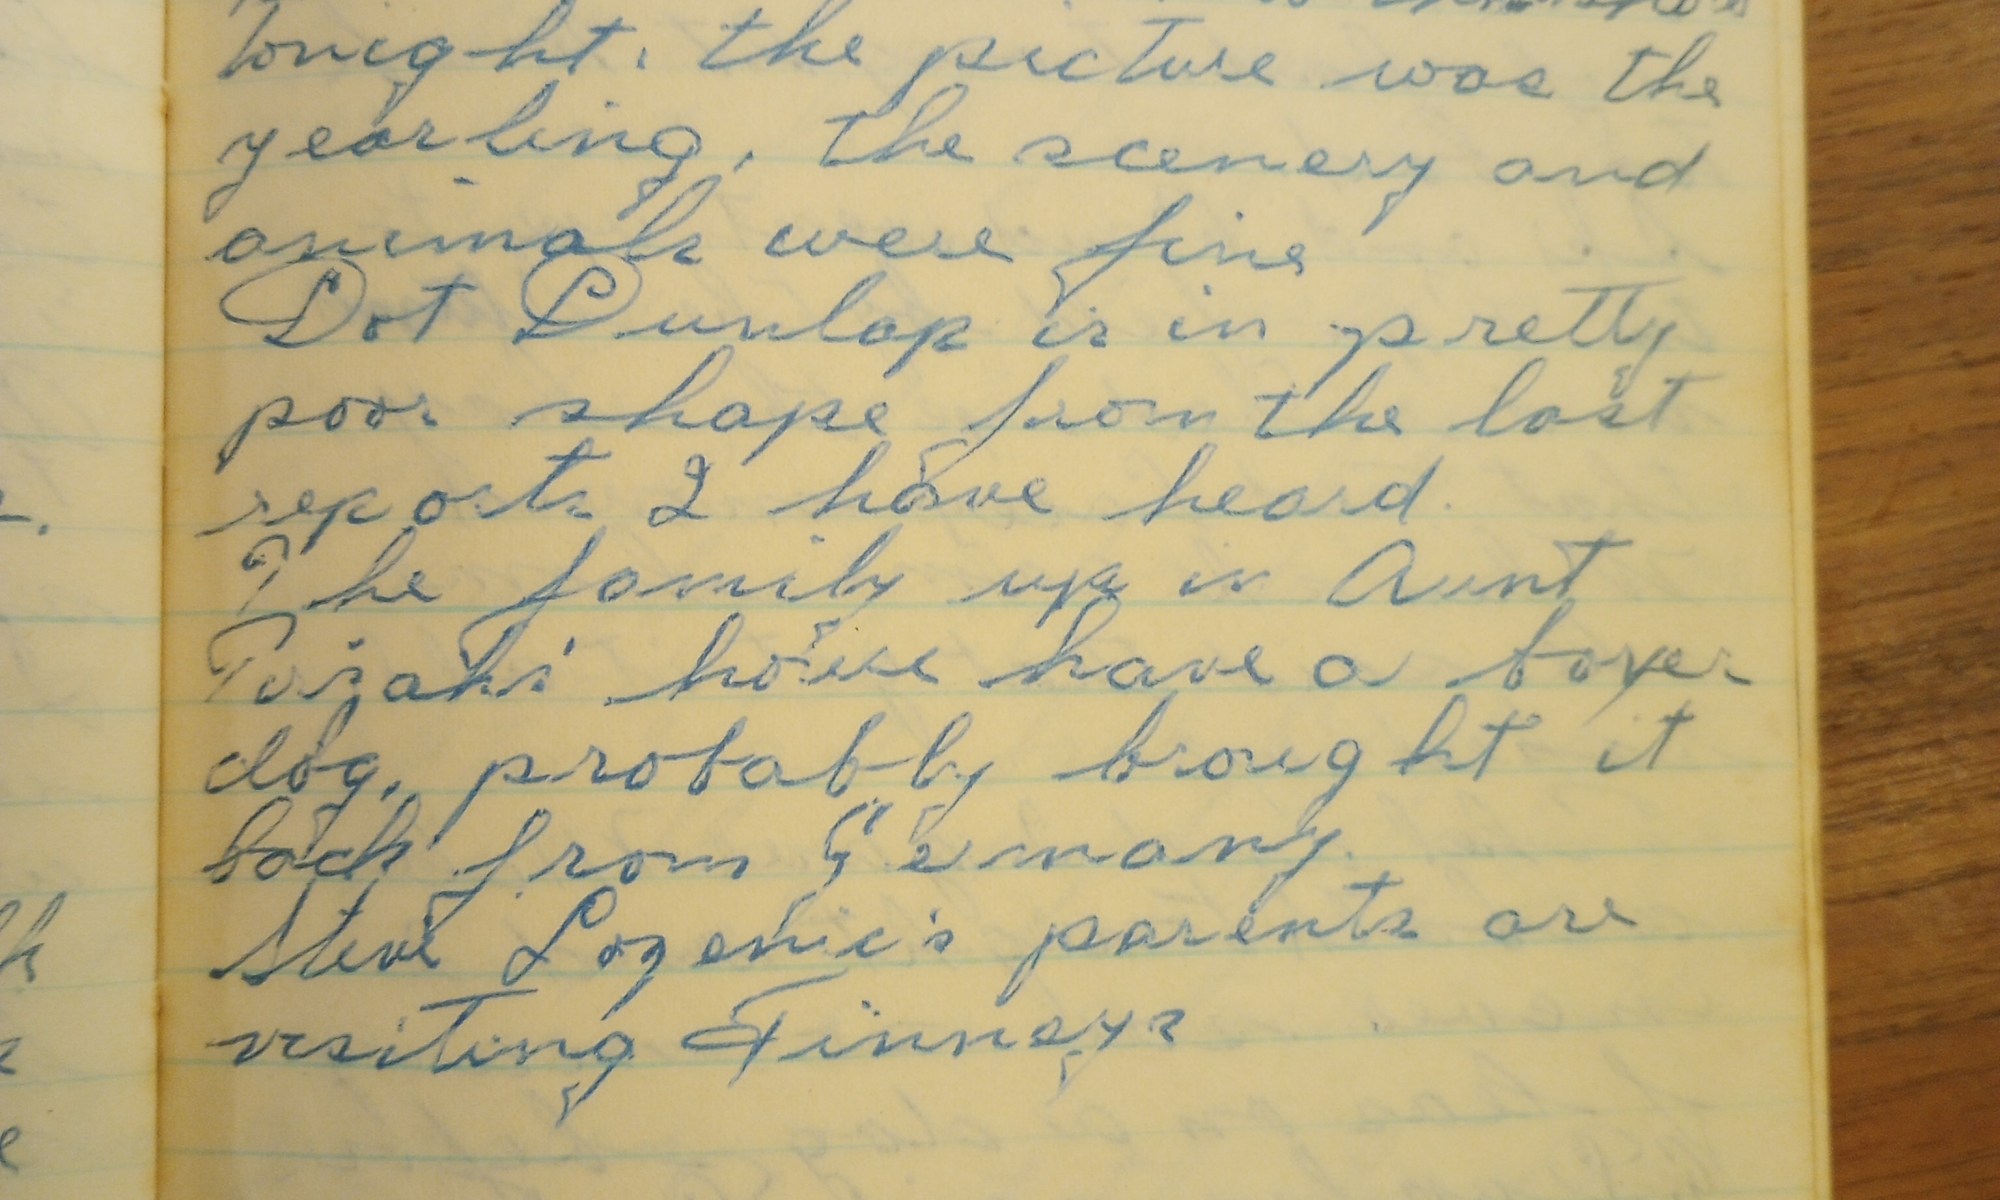 Tonight. the picture was the
yearling, the scenery and
animals were fine
Dot Dunlap is in pretty
poor shape from the last
reports I have heard.
The family up in Aunt
house have a boxer
dog, probably brought it
back from Germany.
Steve Lozenic's parents are
visiting Finneys